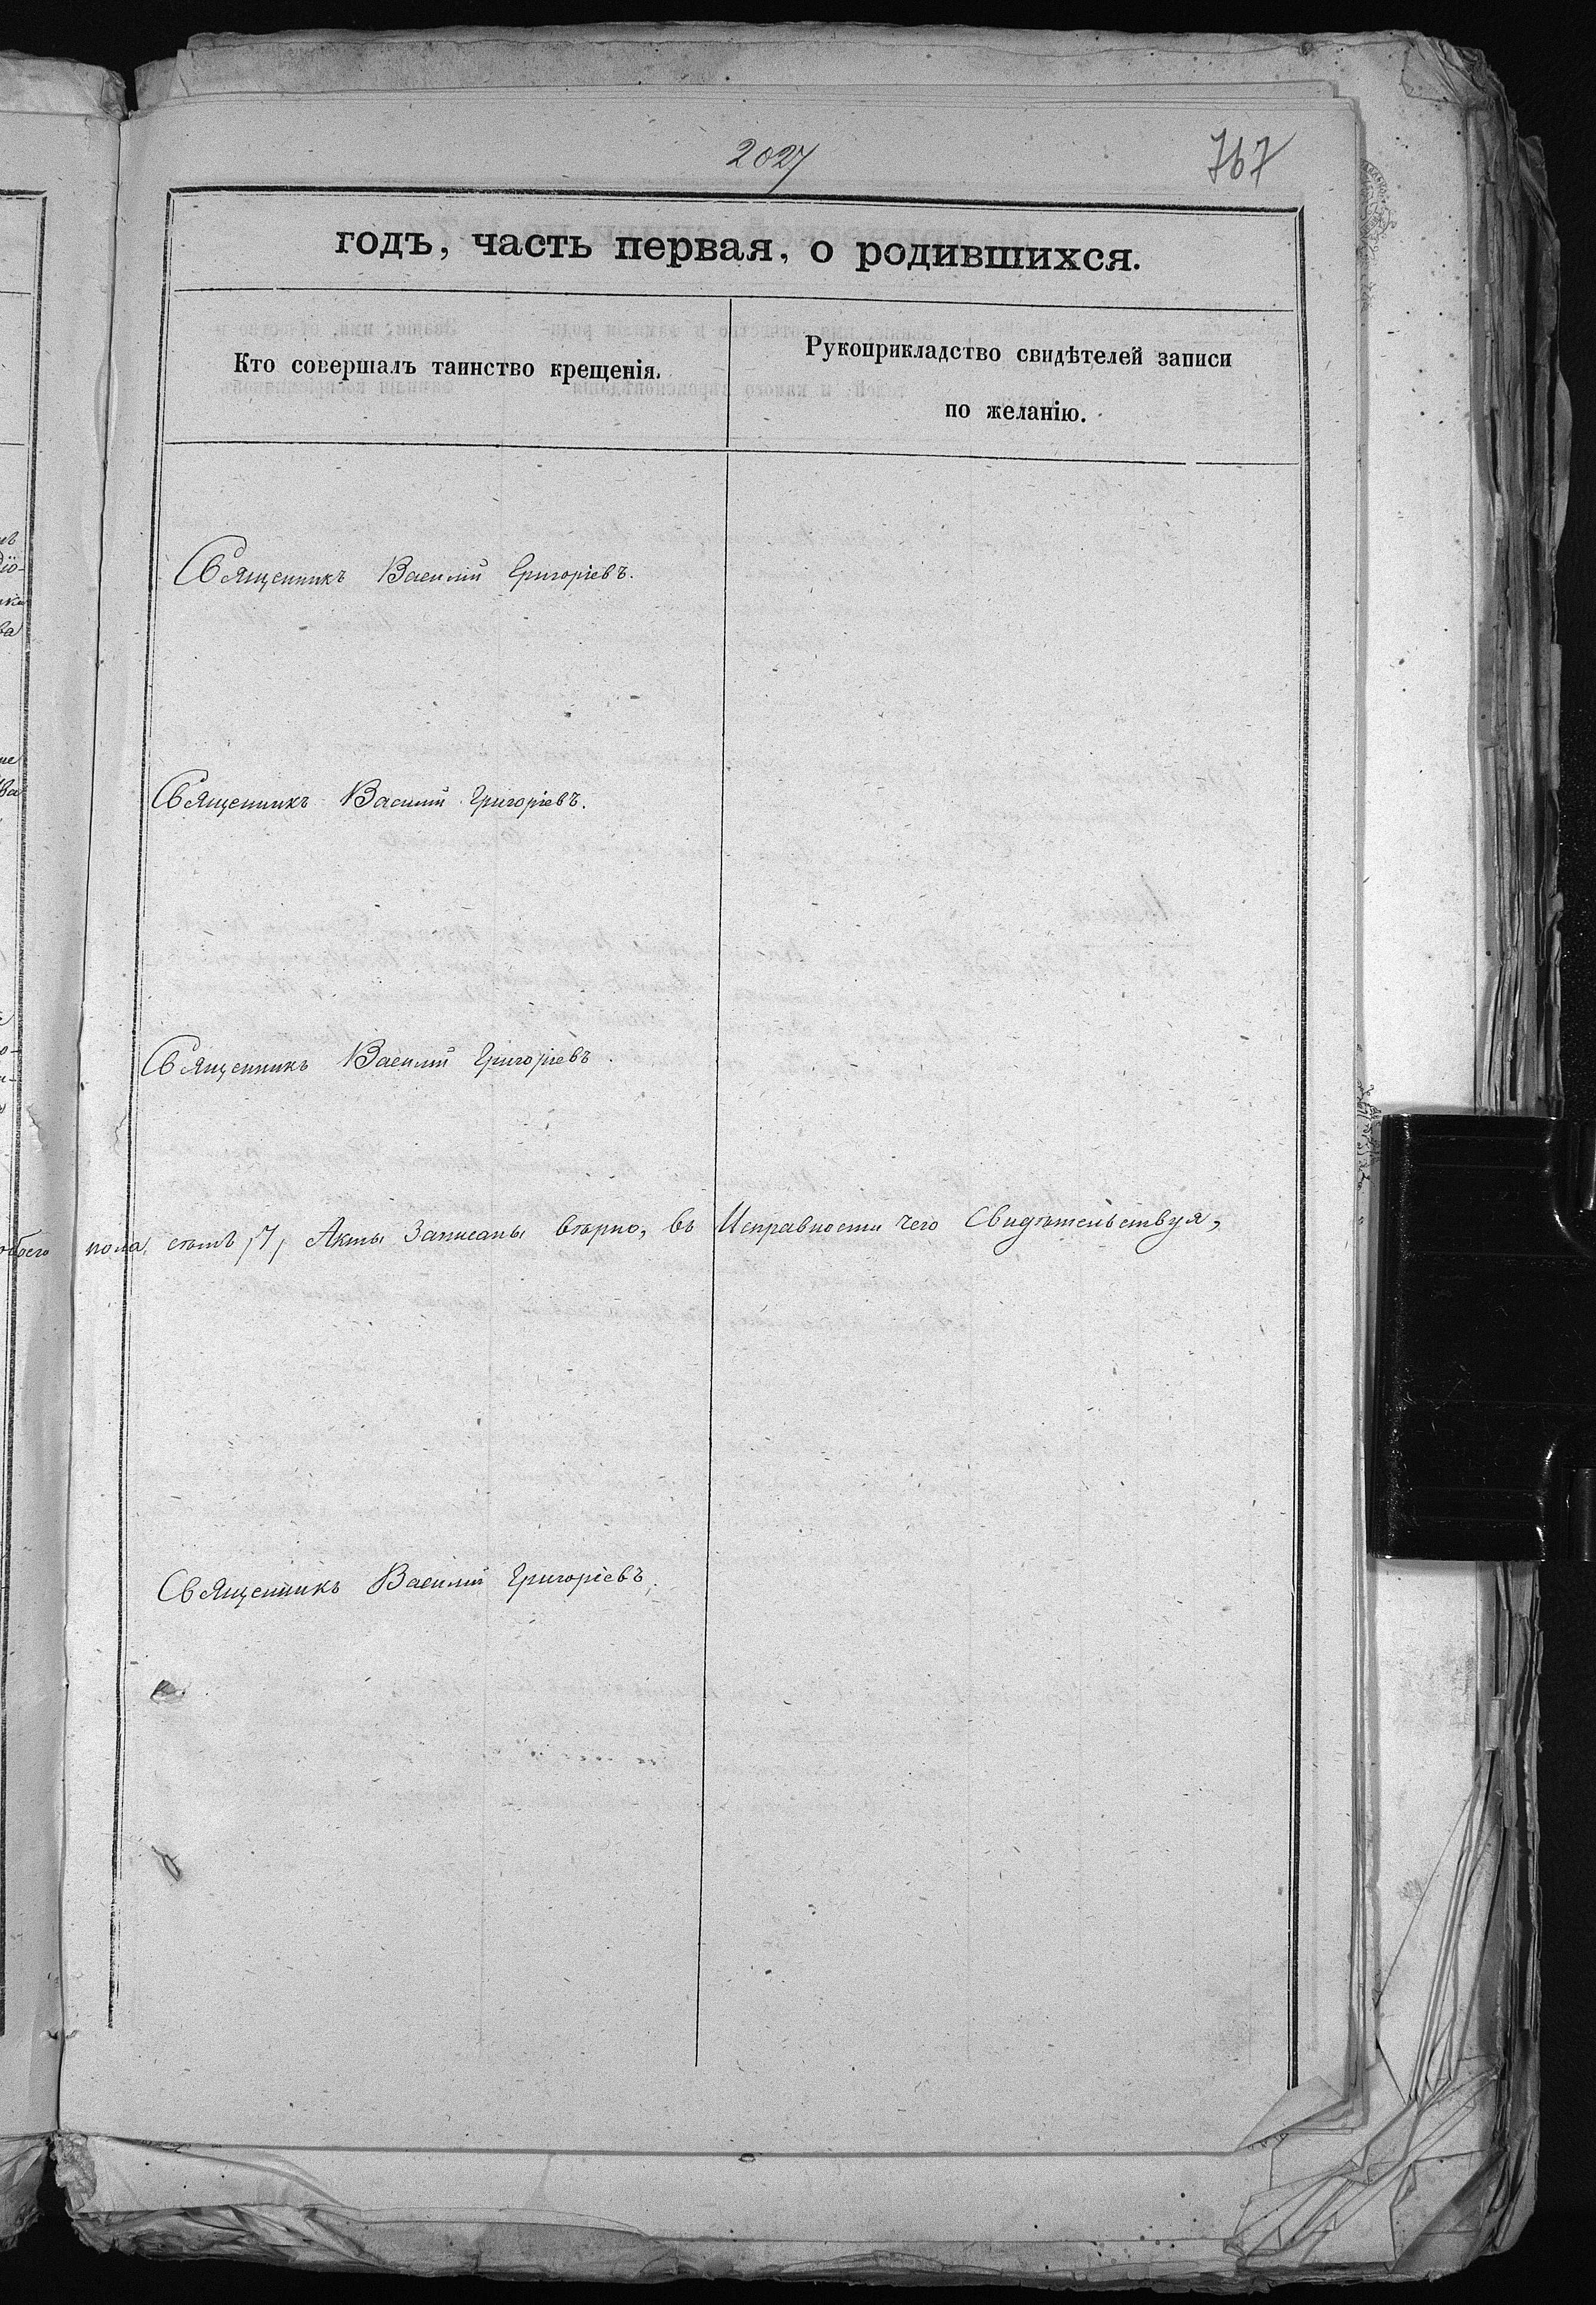 2027
767
годъ, часть первая, о родившихся.
Кто совершалъ таинство крещенія.
Рукоприкладство свидѣтелей записи
по желанію.
Священникъ Василій Григоріевъ.
Священникъ Василій Григоріевъ.
Священникъ Василій Григоріевъ.
обоего пола семь /7/ Акты Записаны вѣрно, въ Исправности чего Свидѣтельствуя,
Священникъ Василій Григоріевъ.